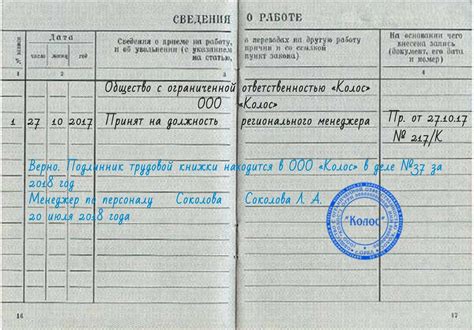 СВЕДЕНИЯ О РАБОТЕ
№ записи
Дата
Сведения о приеме на работу, о переводах на другую работу
и об увольнении (с указанием причин и со ссылкой
на статью, пункт закона)
На основании чего
внесена запись
(документ, его дата
и номер)
число месяц год
1 2 3 4
Общество с ограниченной ответственностью «Колос»
ООО «Колос»
1 27 10 2017 Принят на должность регионального менеджера Пр. от 27.10.17
№ 217/К
Верно. Подлинник трудовой книжки находится в ООО «Колос» в деле №37 за
2018 год
Менеджер по персоналу Соколова Соколова Л. А.
20 июля 2018 года
"Колос"
16
17